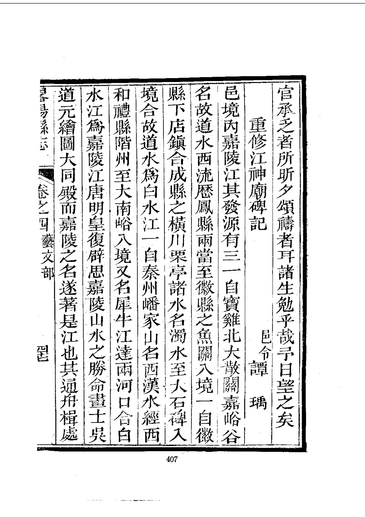 官承乏者所昕夕頌禱者耳諸生勉乎哉予日望之矣
重修江神廟碑記
邑令譚瑀
邑境內嘉陵江其發源有三一自寶雞北大散關嘉峪谷
名故道水西流歷鳳縣兩當至徽縣之魚關入境一自徽
縣下店鎭合成縣之橫川栗亭諸水名濁水至大石碑入
境合故道水爲白水江一自秦州嶓冢山名西漢水經西
和禮縣階州至大南峪入境又名犀牛江達兩河口合白
水江爲嘉陵江唐明皇復辟思嘉陵山水之勝命畫士吳
道元繪圖大同殿而嘉陵之名遂著是江也其通舟楫處
畧陽縣志
卷之四藝文部
四七
407